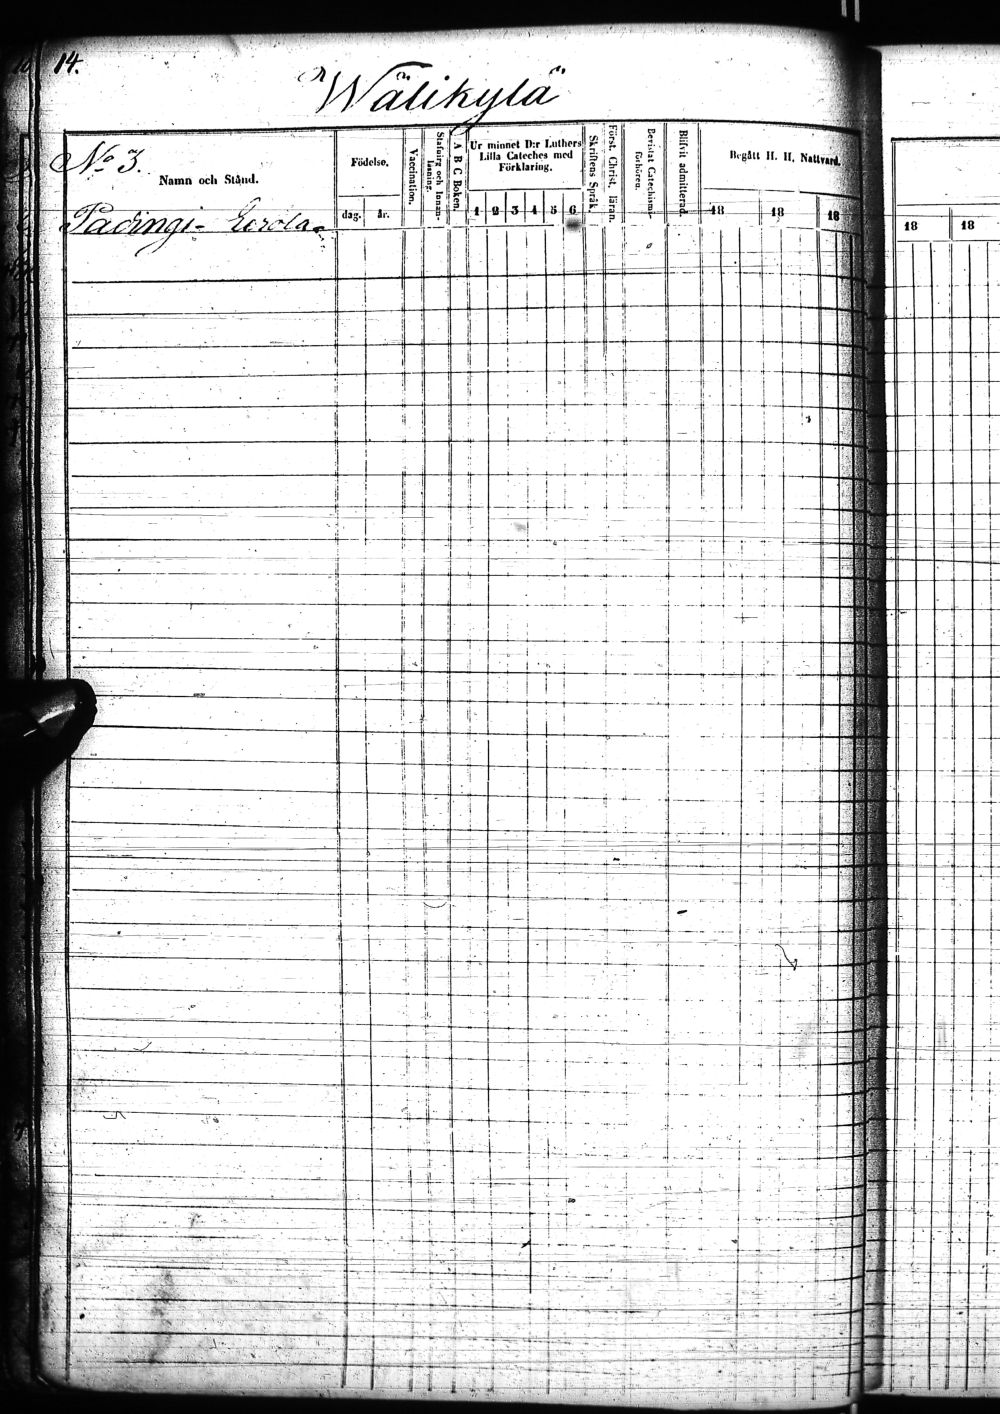 14.
Wälikylä
No 3.
Namn och Stånd.
Födelse.
dag.
år.
Vaccination.
Stafning och Innan-
läsning.
A B C Boken.
Ur minnet D:r Luthers
Lilla Cateches med
Förklaring.
1 2 3 4 5 6
Skriftens Språk.
Först. Christ. läran.
Bevistat Catechismi-
förhören.
Blifvit admitterad.
Begått H. H. Nattvard.
18 18 18
18 18
Padingi- Eerola